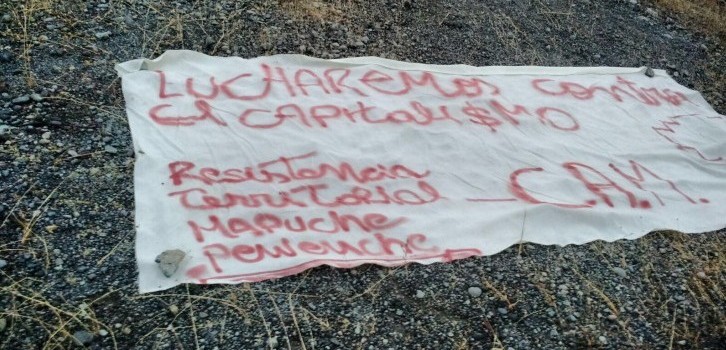 LUCHAREMOS contra
El CAPITALI$MO
Resistencia
Territorial — C.A.M.
Mapuche
Pewenche